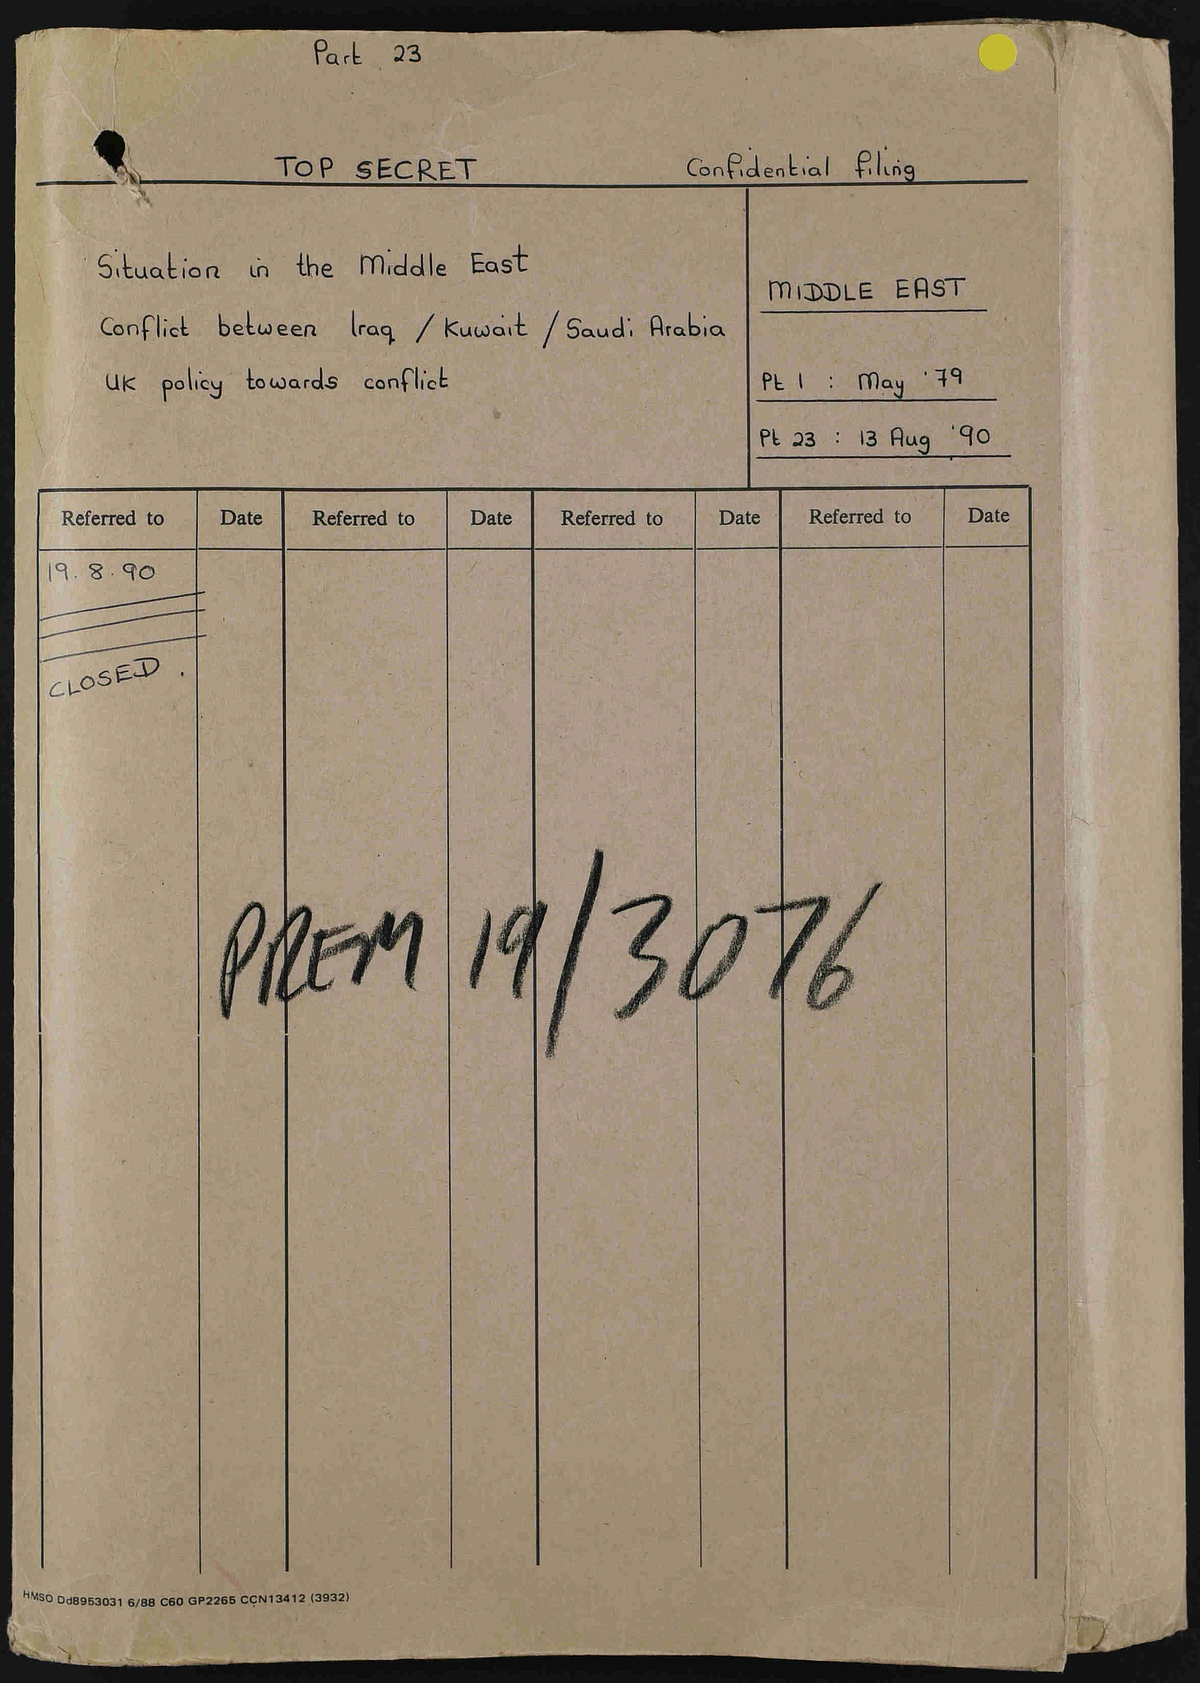 Part 23
TOP SECRET Confidential filing
Situation in the Middle East
Conflict between Iraq / Kuwait / Saudi Arabia
UK policy towards conflict
MIDDLE EAST
Pt 1 : May '79
Pt 23 : 13 Aug '90
Referred to Date Referred to Date Referred to Date Referred to Date
19.8.90
CLOSED.
PREM 19/3076
HMSO Dd8953031 6/88 C60 GP2265 CCN13412 (3932)